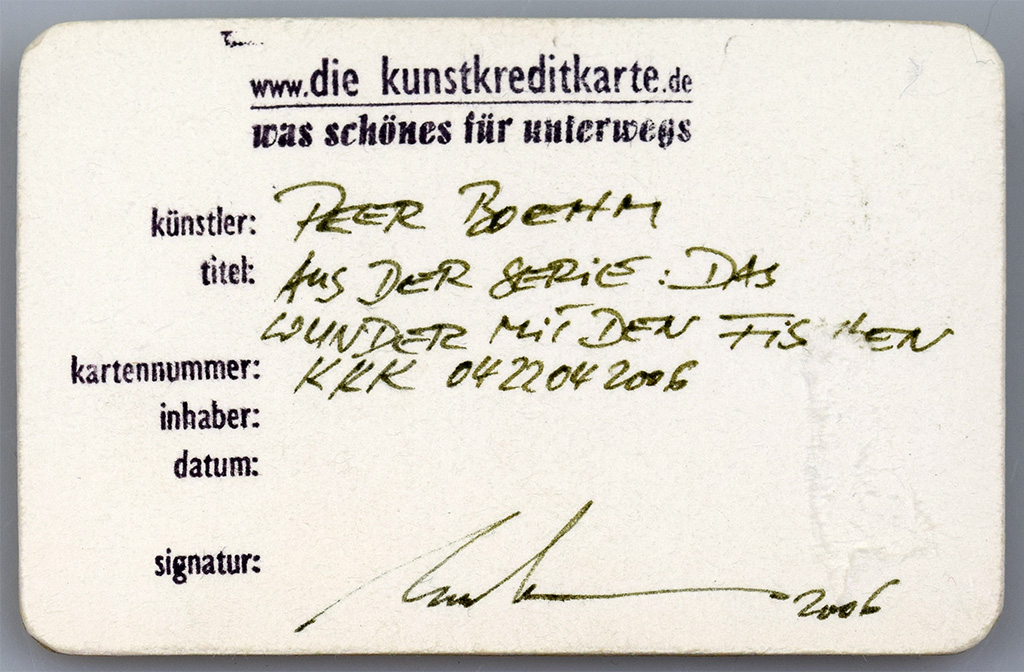 www.die kunstkreditkarte.de
was schönes für unterwegs
künstler: PEER BOEHM
titel: AUS DER SERIE: DAS
WUNDER MIT DEN FISCHEN
kartennummer: KKK 0422042006
inhaber:
datum:
signatur: 2006